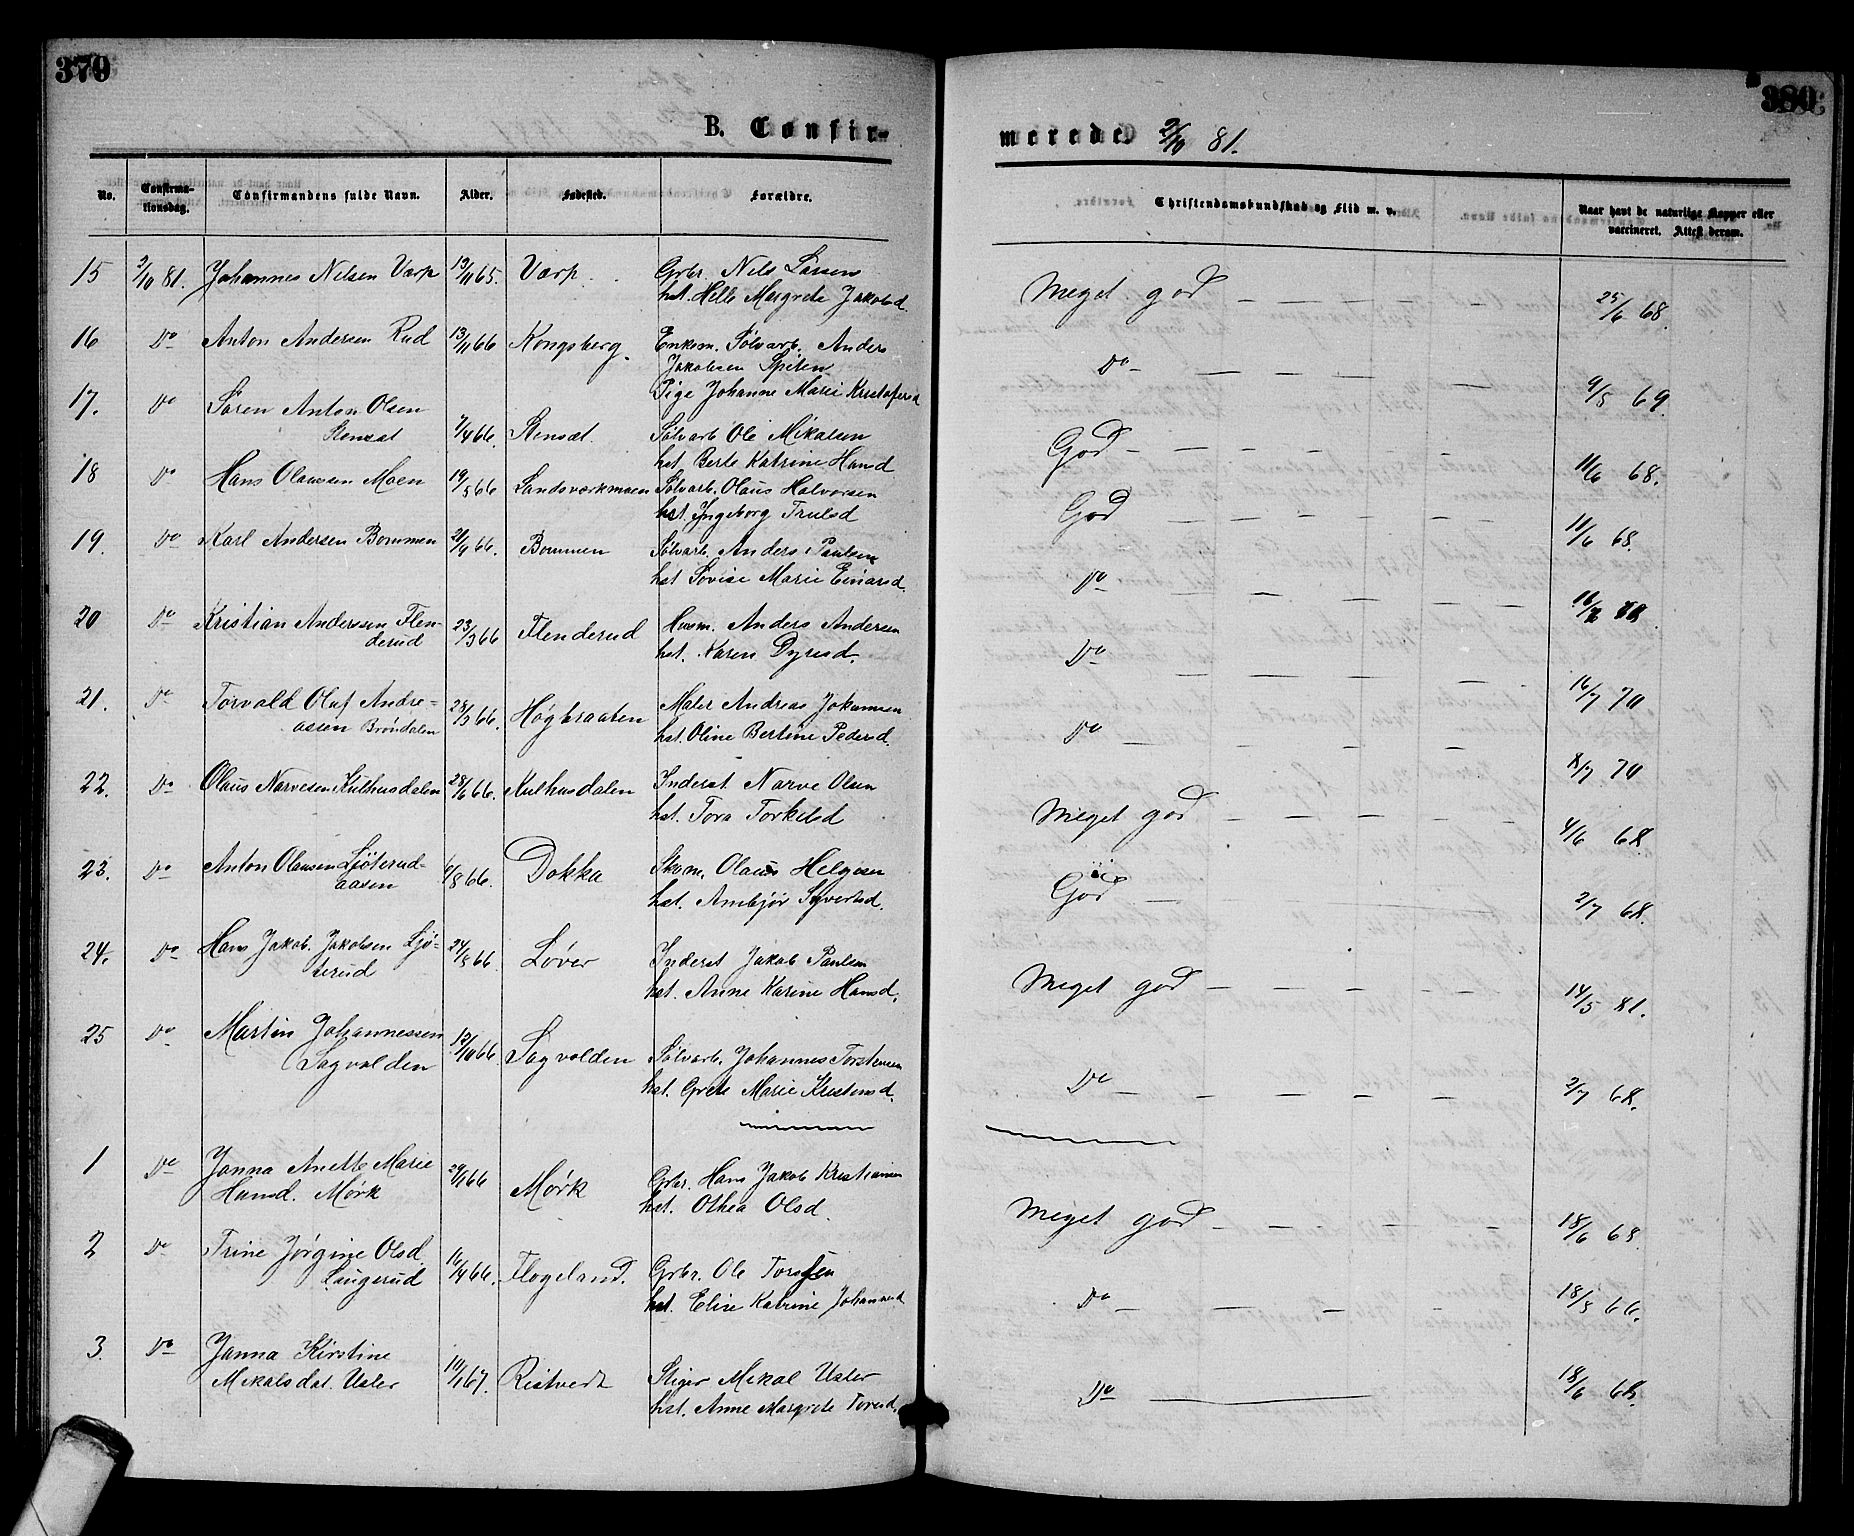 370
B. Confir-
No.
Confirma-
tionsdag.
Confirmandens fulde Navn.
Alder.
Fødested.
Forældre.
15 2/10 81. Johannes Nilsen Værp 13/11 65. Værp. Grbr. Nils Larsen
hst. Helle Margrete Jakobsd.
16 Do Anton Andersen Rud 13/11 66 Kongsberg. Enkem. Sølvarb. Anders
Jakobsen Spiten
Pige Johanne Marie Kristofersd
17. Do Søren Anton Olsen
Stensæt 7/4 66. Stensæt. Sølvarb Ole Mikalsen
hst Berte Katrine Hansd
18 Do Hans Olausen Moen 19/5 66 Landsværkmoen Sølvarb. Olaus Halvorsen
hst. Ingeborg Trulsd
19. Do Karl Andersen Bommen 21/9 66. Bommen Sølvarb. Anders Paulsen
hst Lovise Marie Einarsd.
20 Do Kristian Anderssen Flen-
derud 23/3 66 Flenderud Husm. Anders Andersen
hst. Karen Dyresd.
21. Do Torvald Oluf Andre-
assen Brøndalen 28/3 66. Høgbraaten Maler Andreas Johannesen
hst. Oline Bertine Pedersd.
22. Do Olaus Narvesen Kulhusdalen 28/6 66. Kulhusdalen Inderst Narve Olsen
hst. Tora Torkilsd
23. Do Anton Olausen Ljøterud-
aasen 6/8 66. Dokka Skom. Olaus Helgesen
hst. Ambjør Syvertsd.
24. Do Hans Jakob Jakobsen Ljø-
terud 24/8 66. Løver Inderst Jakob Paulsen
hst. Anne Karine Hansd.
25 Do Martin Johannessen
Sagvolden 12/10 66. Sagvolden Sølvarb. Johannes Torstensen
hst. Grete Marie Kristensd.
1 Do Janna Anette Marie
Hansd. Mørk 29/1 66 Mørk Grbr. Hans Jakob Kristiansen
hst. Othea Olsd.
2 Do Trine Jørgine Olsd.
Laugerud 16/4 66. Flogeland. Grbr. Ole Torsen
hst. Elise Katrine Johannesd
3. Do Janna Kirstine
Mikalsdat. Usler 10/1 67. Ristvedt Stiger Mikal Usler
hst. Anne Margrete Toresd.
380
merede 2/10 81.
Christendomskundskab og Flid m. v.
Naar havt de naturlige Kopper eller
vaccineret. Attest derom.
Meget god — 25/6 68.
Do — 9/5 69
God — 11/6 68.
God — 11/6 68.
Do — 16/7 70
Do — 16/7 70
Do — 8/7 70
Meget god — 4/6 68.
God — 2/7 68.
Meget god — 14/5 81.
Do — 2/7 68.
Meget god — 18/6 68.
Do — 18/8 66.
Do — 18/6 68.